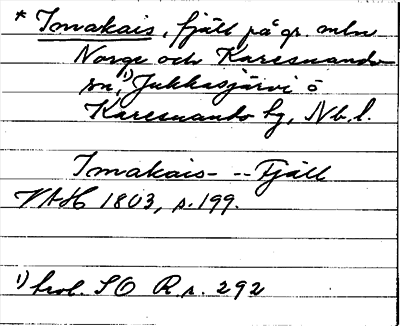 * Imakais, fjäll på gr. mln
Norge och Karesuando
sn,¹⁾ Jukkasjärvi o
Karesuando hg, Nb. l.
Imakais- -- Fjäll
VAH 1803, s. 199.
¹⁾ trol. SO R. s. 292